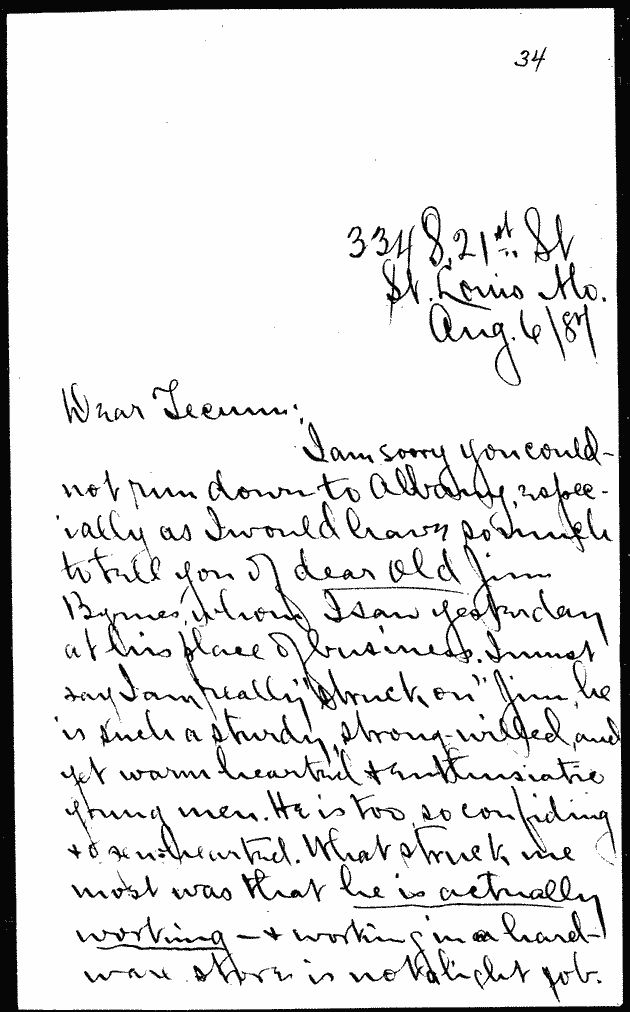 34
334 S. 21st St
St. Louis Mo.
Aug. 6/87
Dear Tecum:
I am sorry you could
not run down to Albany, espec-
ially as I would have so much
to tell you of dear old Jim
Byrnes, whom I saw yesterday
at his place of business. I must
say I am really "struck on" Jim, he
is such a sturdy, strong-willed, and
yet warmhearted & enthusiastic
young men. He is too, so confiding
& openhearted. What struck me
most was that he is actually
working – & working in a hard-
ware store is not a light job.